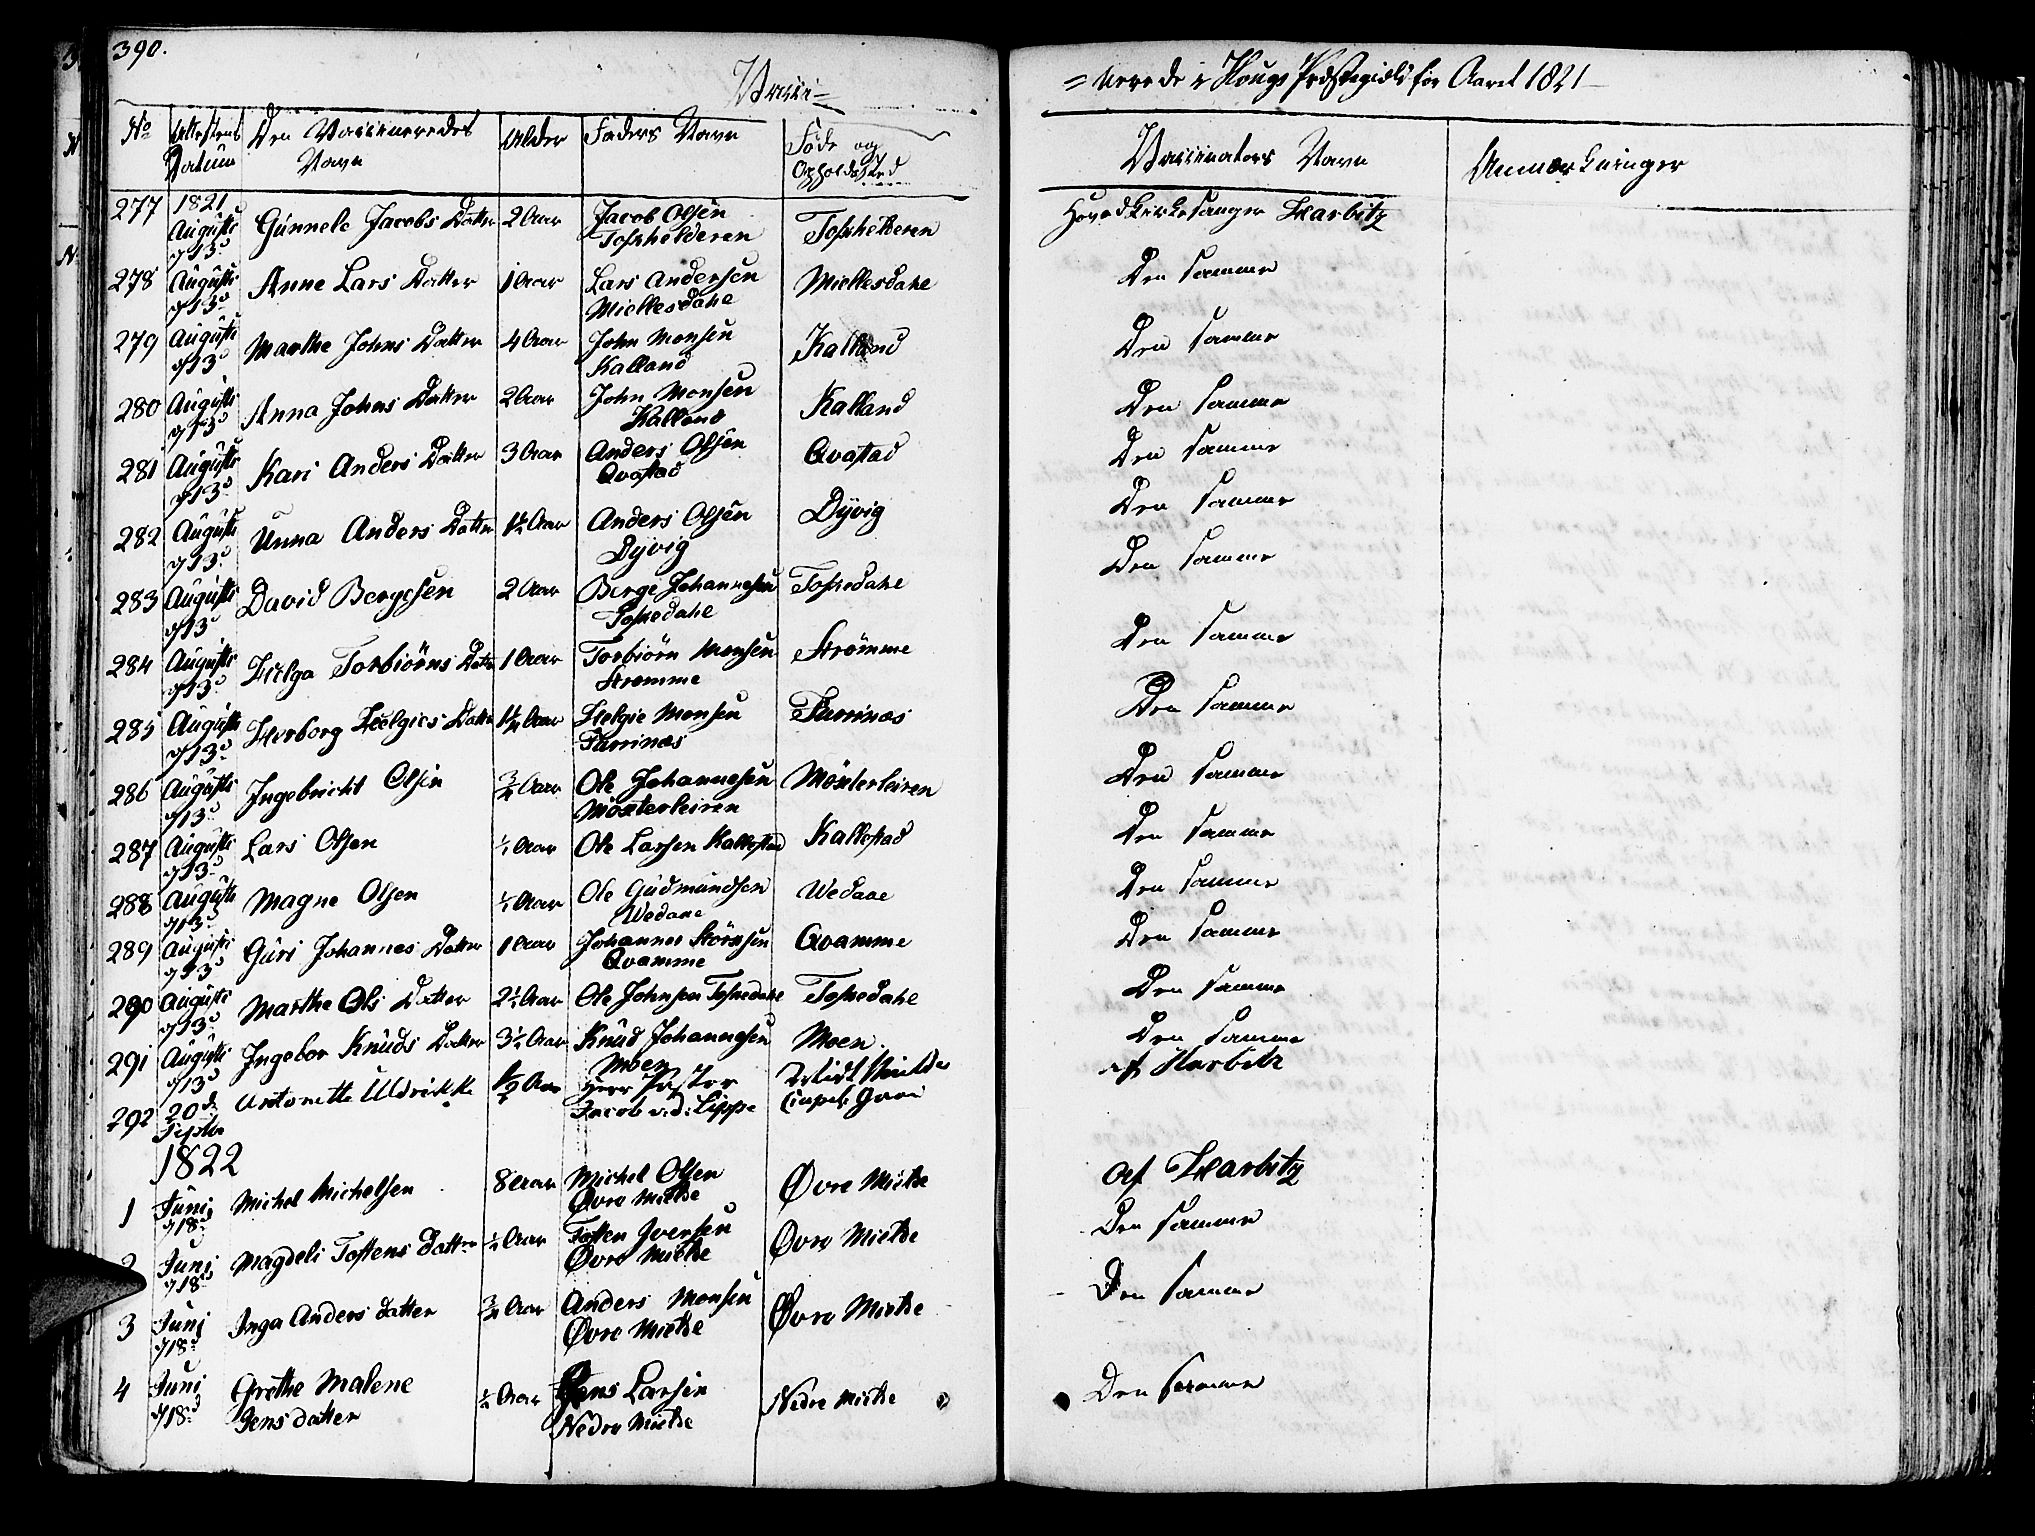 390.
Vacci=
=nerede i Hougs Præstegield for Aaret 1821
No
Attestens Datum
Den Vaccineredes Navn
Alder
Faders Navn
Føde og Opholdssted
Vaccinators Navn
Anmærkninger
277 1821 Augusti d 13d Gunnele Jacobs Datter 2 Aar Jacob Olsen Tosshelderen Tosshelderen Hovedkirkesanger Harbitz
278 Augusti d 13d Anne Lars Datter 1 Aar Lars Andersen Mieltesdahe Mieltesdahe Den samme
279 Augusti d 13d Marthe Johns Datter 4 Aar John Monsen Kalland Kalland Den samme
280 Augusti d 13d Anna Johns Datter 2 Aar John Monsen Kalland Kalland Den samme
281 Augusti d 13d Kari Anders Datter 3 Aar Anders Olsen Qvastad Qvastad Den samme
282 Augusti d 13d Unna Anders Datter 1½ Aar Anders Olsen Dyvig Dyvig Den samme
283 Augusti d 13d David Bergesen 2 Aar Berge Johannesen Tossedahe Tossedahe Den samme
284 Augusti d 13d Helga Torbiörns Datter 1 Aar Torbiörn Monsen Strømme Strømme Den samme
285 Augusti d 13d Herborg Helgies Datter 1½ Aar Helgie Monsen Furrinæs Furrinæs Den samme
286 Augusti d 13d Ingebricht Olsen ¾ Aar Ole Johannesen Mösterleiren Mösterleiren Den samme
287 Augusti d 13d Lars Olsen Aar Ole Larsen Kallestad Kallestad Den samme
288 Augusti d 13d Magne Olsen Aar Ole Gudmundsen Wedaae Wedaae Den samme
289 Augusti d 13d Guri Johannes Datter 1 Aar Johannes Störksen Qvamme Qvamme Den samme
290 Augusti d 13d Marthe Ols Datter 2½ Aar Ole Johnsen Tossedahe Tossedahe Den samme
291 Augusti d 13d Ingebor Knuds Datter 3½ Aar Knud Johannesen Moen Moen. Den samme
292 20d Septbr Antonette Uldrikke Aar Herr Pastor Jacob v: d: Lippe af Harbitz
1822
1 Juni d 18d Michel Michelsen 8 Aar Michel Olsen Øvre Mielde Øvre Mielde Af Harbitz
2 Juni d 18d Magdeli Tostens Datter ½ Aar Tosten Iversen Øvre Mielde Øvre Mielde Den samme
3 Juni d 18d Inga Anders datter ¾ Aar Anders Monsen Øvre Mielde Øvre Mielde Den samme
4 Juni d 18d Grethe Malene Jens datter ½ Aar Jens Larsen Nedre Mielde Nedre Mielde Den samme